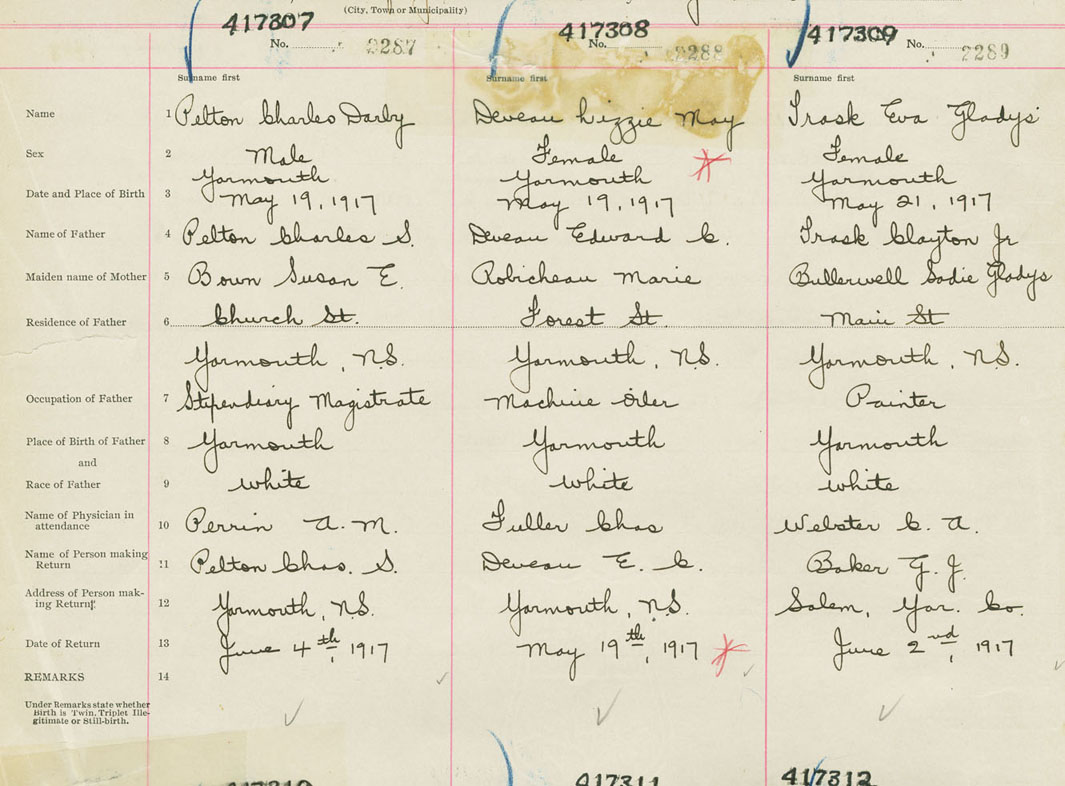 (City, Town or Municipality)
417307 417308 417309
No. 2287 No. 2288 No. 2289
Surname first Surname first Surname first
Name 1 Pelton Charles Darby Deveau Lizzie May Trask Eva Gladys
Sex 2 Male Female Female
Yarmouth Yarmouth Yarmouth
Date and Place of Birth 3 May 19, 1917 May 19, 1917 May 21, 1917
Name of Father 4 Pelton Charles S. Deveau Edward C. Trask Clayton Jr
Maiden name of Mother 5 Bown Susan E. Robicheau Marie Bullerwell Sadie Gladys
Residence of Father 6 Church St. Forest St. Main St
Yarmouth, N.S. Yarmouth, N.S. Yarmouth, N.S.
Occupation of Father 7 Stipendiary Magistrate Machine Oiler Painter
Place of Birth of Father 8 Yarmouth Yarmouth Yarmouth
and
Race of Father 9 white white white
Name of Physician in
attendance 10 Perrin A. M. Fuller Chas Webster C. A.
Name of Person making
Return 11 Pelton Chas. S. Deveau E. C. Baker G. J.
Address of Person mak-
ing Return 12 Yarmouth, N.S. Yarmouth, N.S. Salem, Yar. Co.
Date of Return 13 June 4th, 1917 May 19th, 1917 June 2nd, 1917
REMARKS 14
Under Remarks state whether
Birth is Twin, Triplet Ille-
gitimate or Still-birth.
417311 417312